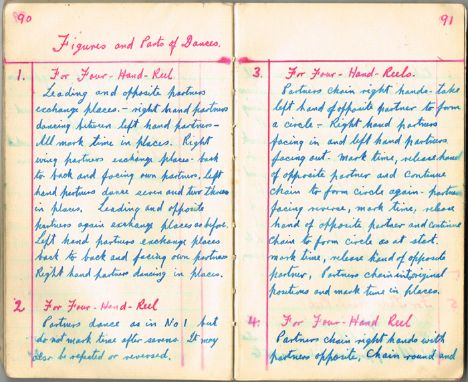 90
Figures and Parts of Dances.
1. For Four-Hand-Reel
Leading and opposite partners
exchange places. - right hand partners
dancing between left hand partners -
All mark time in places. Right
wing partners exchange places - back
to back and facing own partners, left
hand partners dance seven and two threes
in places. Leading and opposite
partners again exchange places as before
Left hand partners exchange places
back to back and facing own partners
Right hand partner dancing in places.
2 For Four-Hand-Reel
Partners dance as in No 1 but
do not mark time after sevens. It may
also be repeated or reversed.
91
3. For Four-Hand-Reels.
Partners chain right hands - take
left hand of opposite partner to form
a circle - Right hand partners
facing in and left hand partners
facing out. Mark time, release hand
of opposite partner and continue
chain to form circle again - partners
facing reverse, mark time, release
hand of opposite partner and continue
chain to form circle as at start.
Mark time, release hand of opposite
partner, Partners chain into original
positions and mark time in places.
4. For Four-Hand Reel
Partners chain right hands with
partners opposite, Chain round and